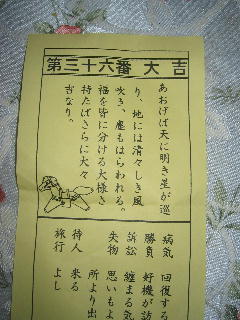 第三十六番 大吉
あおげば天に明き星が巡
り、地には清々しき風
吹き、塵もはらわれる。
福を皆に分ける大様さ
持たばさらに大々
吉なり。
病気 回復する
勝負 好機が訪
訴訟 纏まる気
失物 思いもよ
所より出
待人 来る
旅行 よし